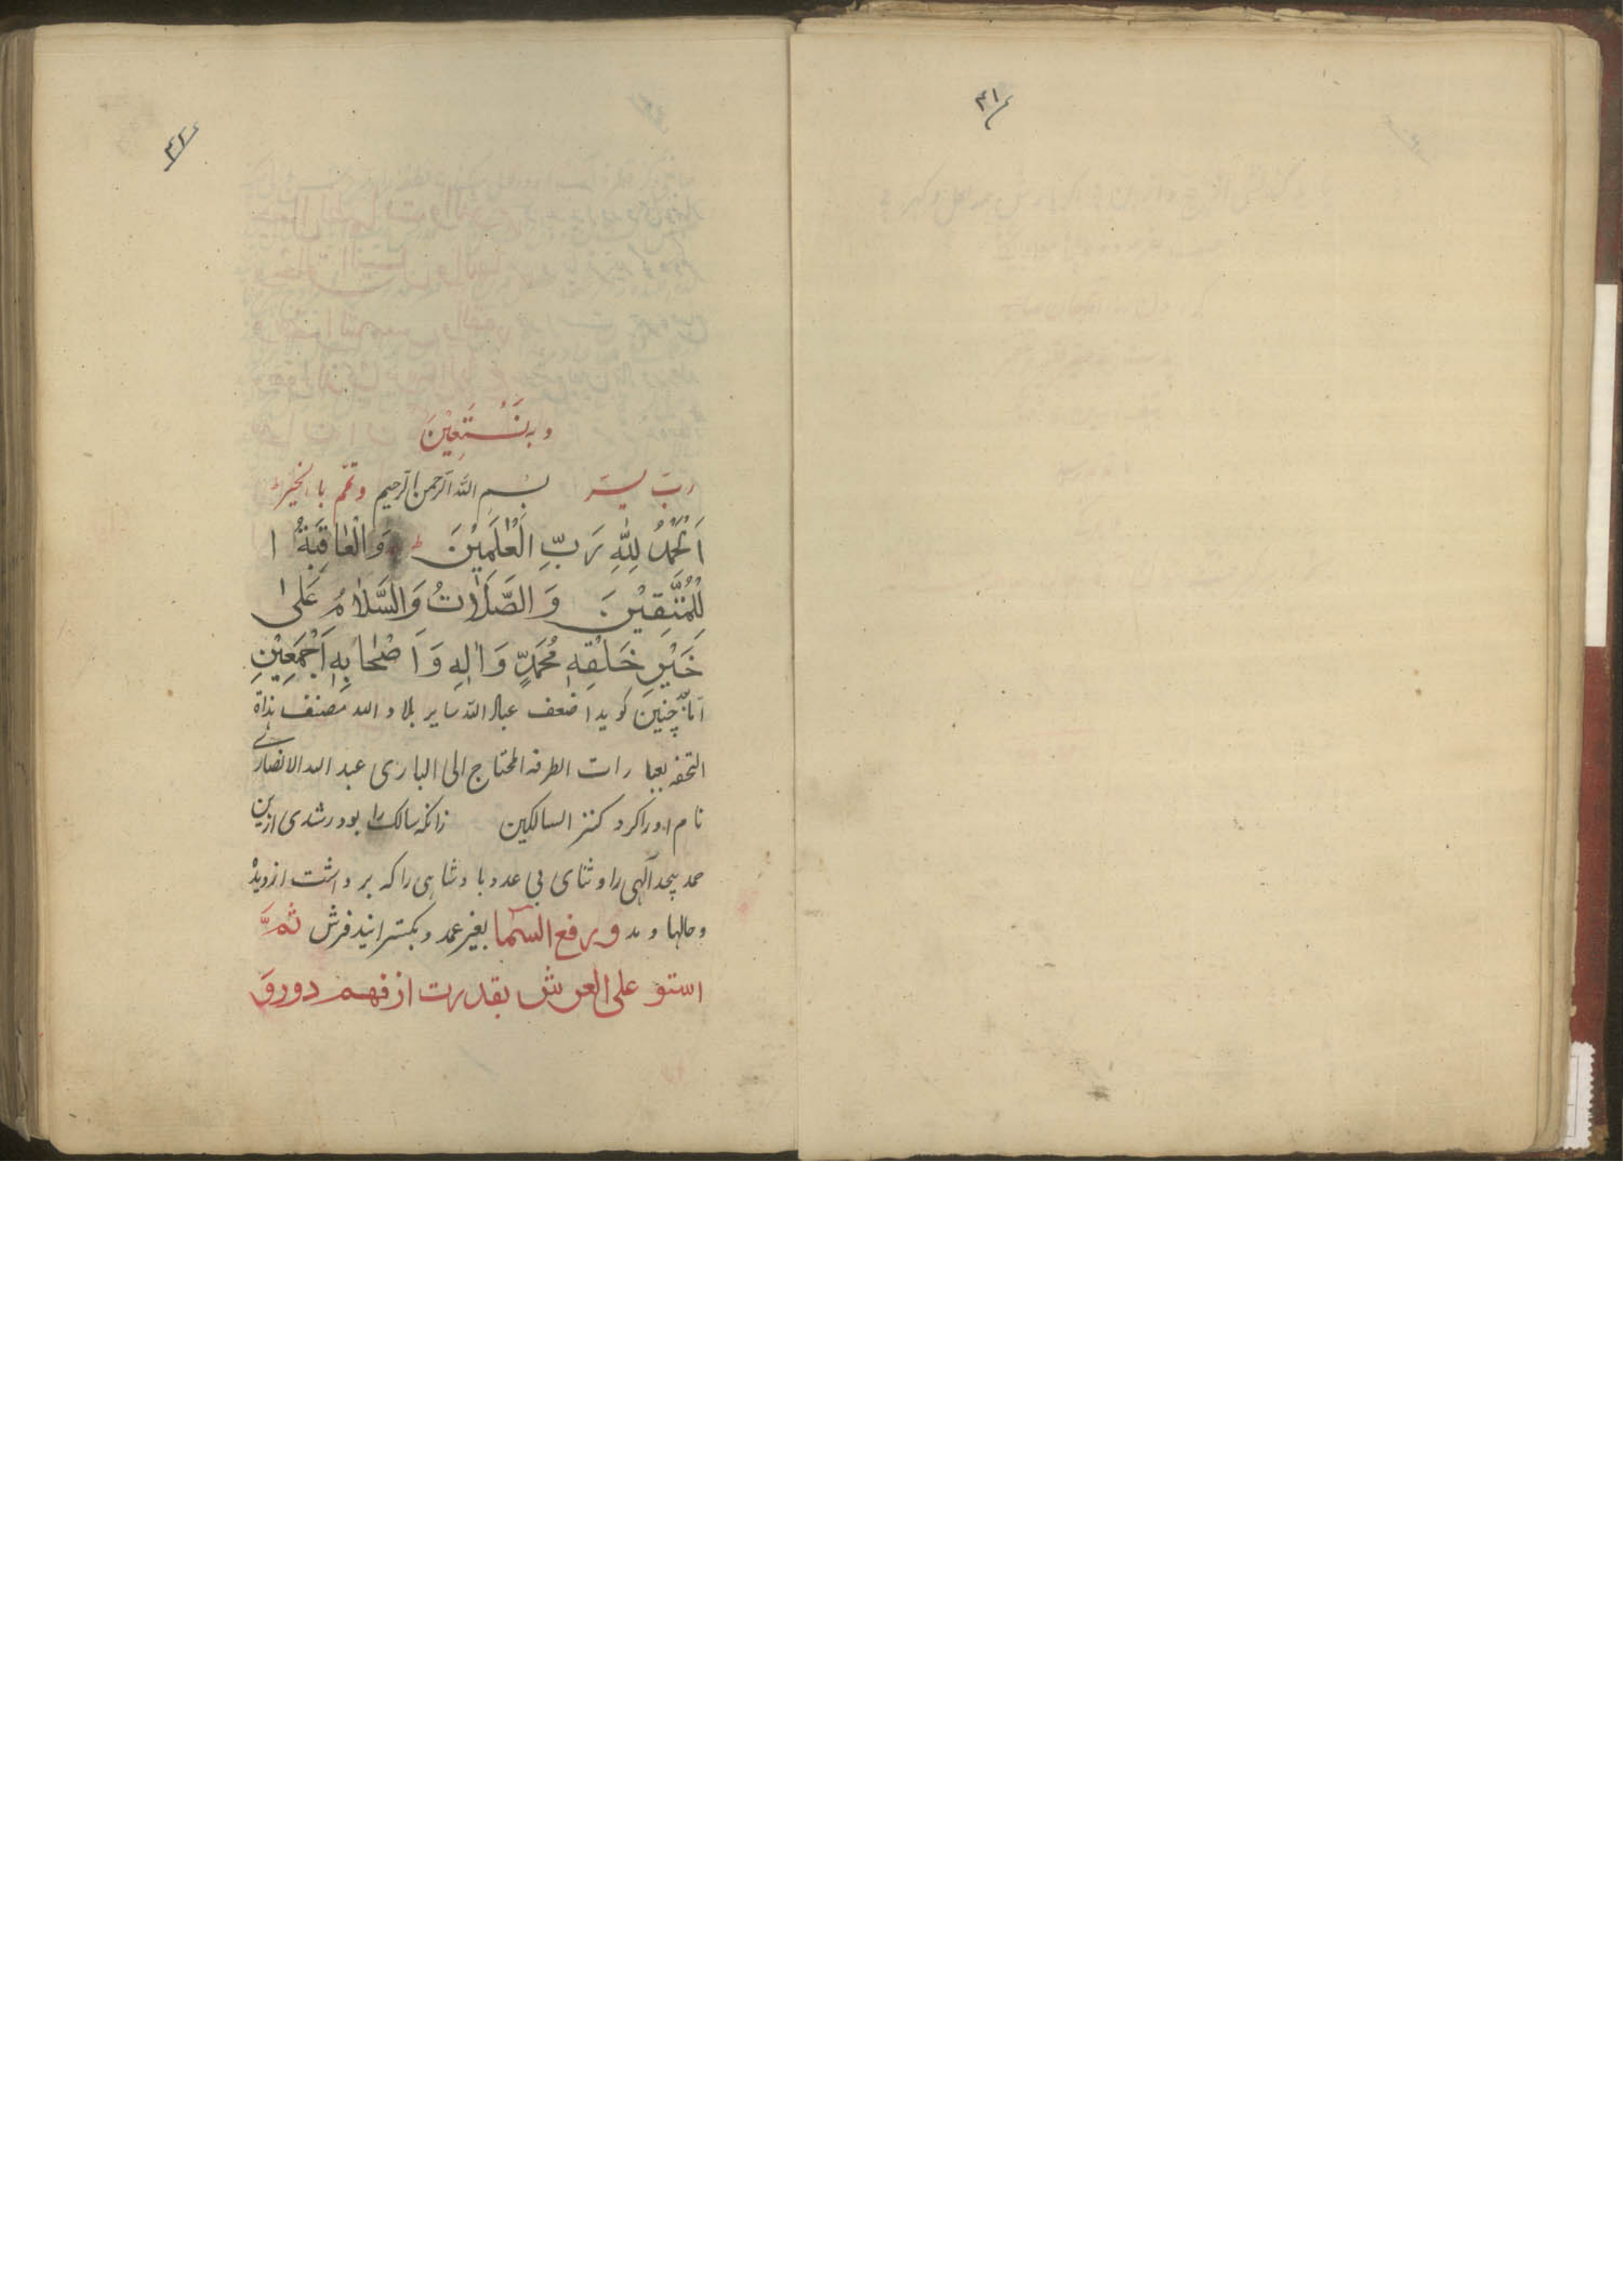 ۴۱
۴۲
وبه نَسْتَعِيْنَ
ربّ يسّر بسم الله الرحمن الرحيم وتمّم بالخير
اَلْحَمْدُ لِلّٰهِ رَبِّ الْعٰلَمِيْنَ وَالْعَاقِبَةُ ا
لِلْمُتَّقِيْنَ وَالصَّلٰاتُ وَالسَّلَامُ عَلٰى
خَيْرِ خَلْقِهٖ مُحَمَّدٍ وَاٰلِهٖ وَاَصْحَابِهٖ اَجْمَعِيْنِ
امّا چنین کوید اضعف عباد الله سایر بلاد الله مصنف هذه
التحفه بعبارات الطرفه المحتاج الی الباری عبد الله الانصاری
نام اورا کرد کنز السالکین زانکه سالک را بود رشدی ازین
حمد بیحد آلهی را و ثنای بی عدد پادشاهی را که برداشت از دیدهٔ
و رفع السما بغیر عمد و بکسترانید فرش ثُمَّ
استو علی العرش بقدرت از فهم دور و